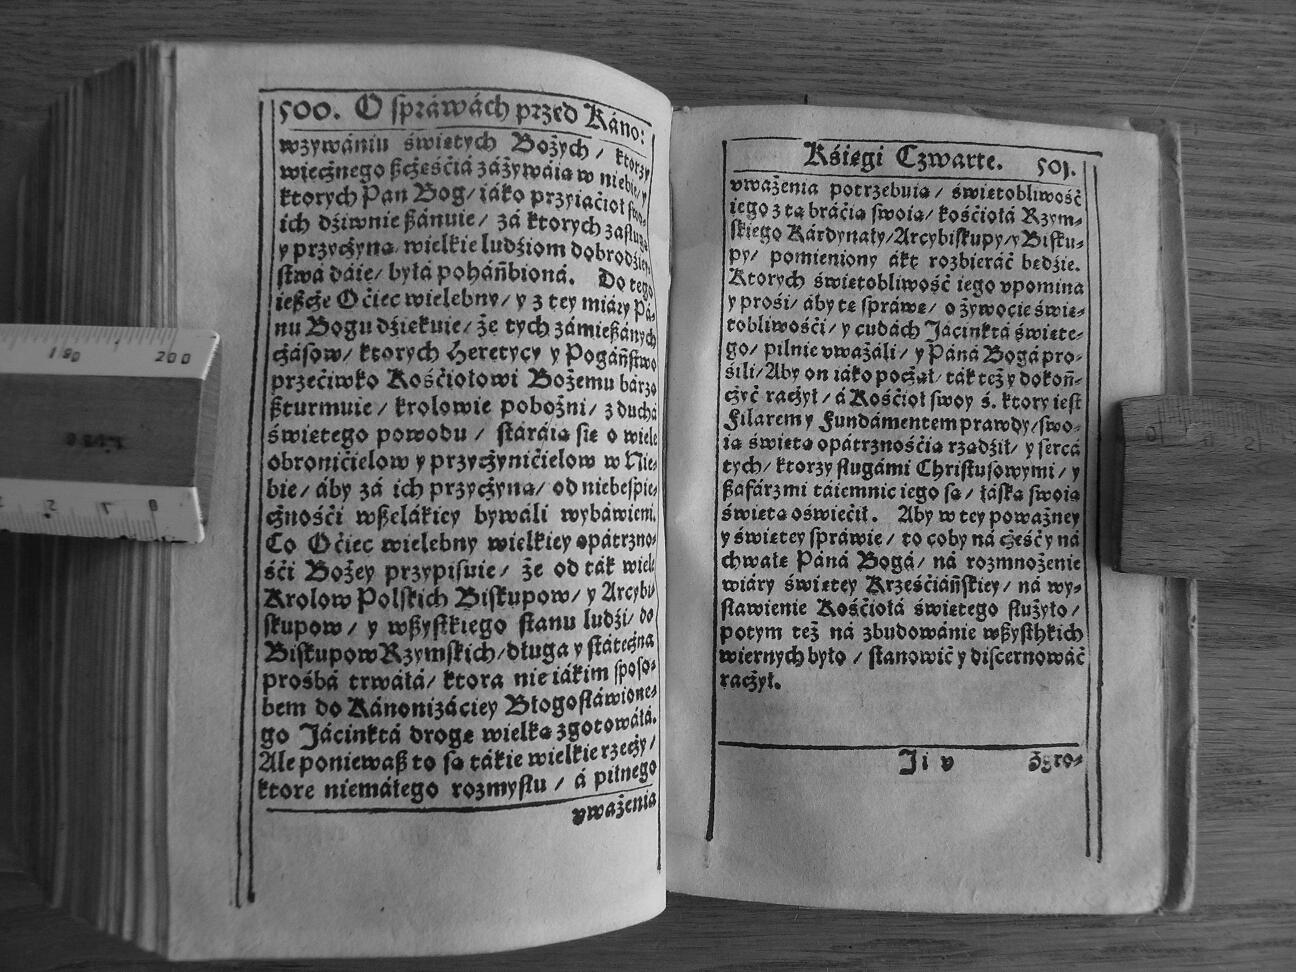 500. O spráwách przed Káno:
wzywániu świętych Bożych / ktorzy
wiecznego szcześćia záżywáią w niebie / y
ktorych Pan Bog / iáko przyiaćioł swo-
ich dźiwnie szánuie / zá ktorych zasługą
y przyczyną wielkie ludźiom dobrodźiey-
stwá dáie / byłá poháńbioná. Do tego
ieszcze Oćiec wielebny / y z tey miáry Pá-
nu Bogu dźiękuie / że tych zámieszánych
czásow / ktorych Heretycy y Pogáństwo
przećiwko Kośćiołowi Bożemu bárzo
szturmuie / krolowie pobożni / z duchá
świętego powodu / stáráią się o wiele
obronićielow y przyczynićielow w Nie-
bie / áby zá ich przyczyną / od niebespie-
cznośći wszelákiey bywáli wybáwieni.
Co Oćiec wielebny wielkiey opátrzno-
śći Bożey przypisuie / że od ták wiele
Krolow Polskich Biskupow / y Arcybi-
skupow / y wszystkiego stanu ludźi / do
Biskupow Rzymskich / długa y státeczna
prośbá trwáłá / ktora nie iákim sposo-
bem do Kánonizáciey Błogosłáwione-
go Jácinktá drogę wielką zgotowáłá.
Ale poniewasz to są tákie wielkie rzeczy /
ktore niemáłego rozmysłu / á pilnego
vważenia
Kśięgi Czwarte. 501.
vważenia potrzebuią / świętobliwość
iego z tą bráćią swoią / kośćiołá Rzym-
skiego Kárdynały / Arcybiskupy / y Bisku-
py / pomieniony ákt rozbieráć będźie.
Ktorych świętobliwość iego vpomina
y prośi / áby tę spráwę / o żywoćie świę-
tobliwośći / y cudách Jácinktá święte-
go / pilnie vważáli / y Páná Bogá pro-
śili / Aby on iáko począł / ták też y dokoń-
czyć raczył / á Kośćioł swoy ś. ktory iest
Filarem y Fundámentem prawdy / swo-
ią świętą opátrznośćią rządźił / y sercá
tych / ktorzy sługámi Christusowymi / y
száfárzmi táiemnic iego są / łáską swoią
świętą oświećił. Aby w tey poważney
y świętey spráwie / to coby ná cześć y ná
chwałę Páná Bogá / ná rozmnożenie
wiáry świętey Krześćiáńskiey / ná wy-
stawienie Kośćiołá świętego służyło /
potym też ná zbudowánie wszysthkich
wiernych było / stanowić y discernowáć
raczył.
Ii v Zgro-